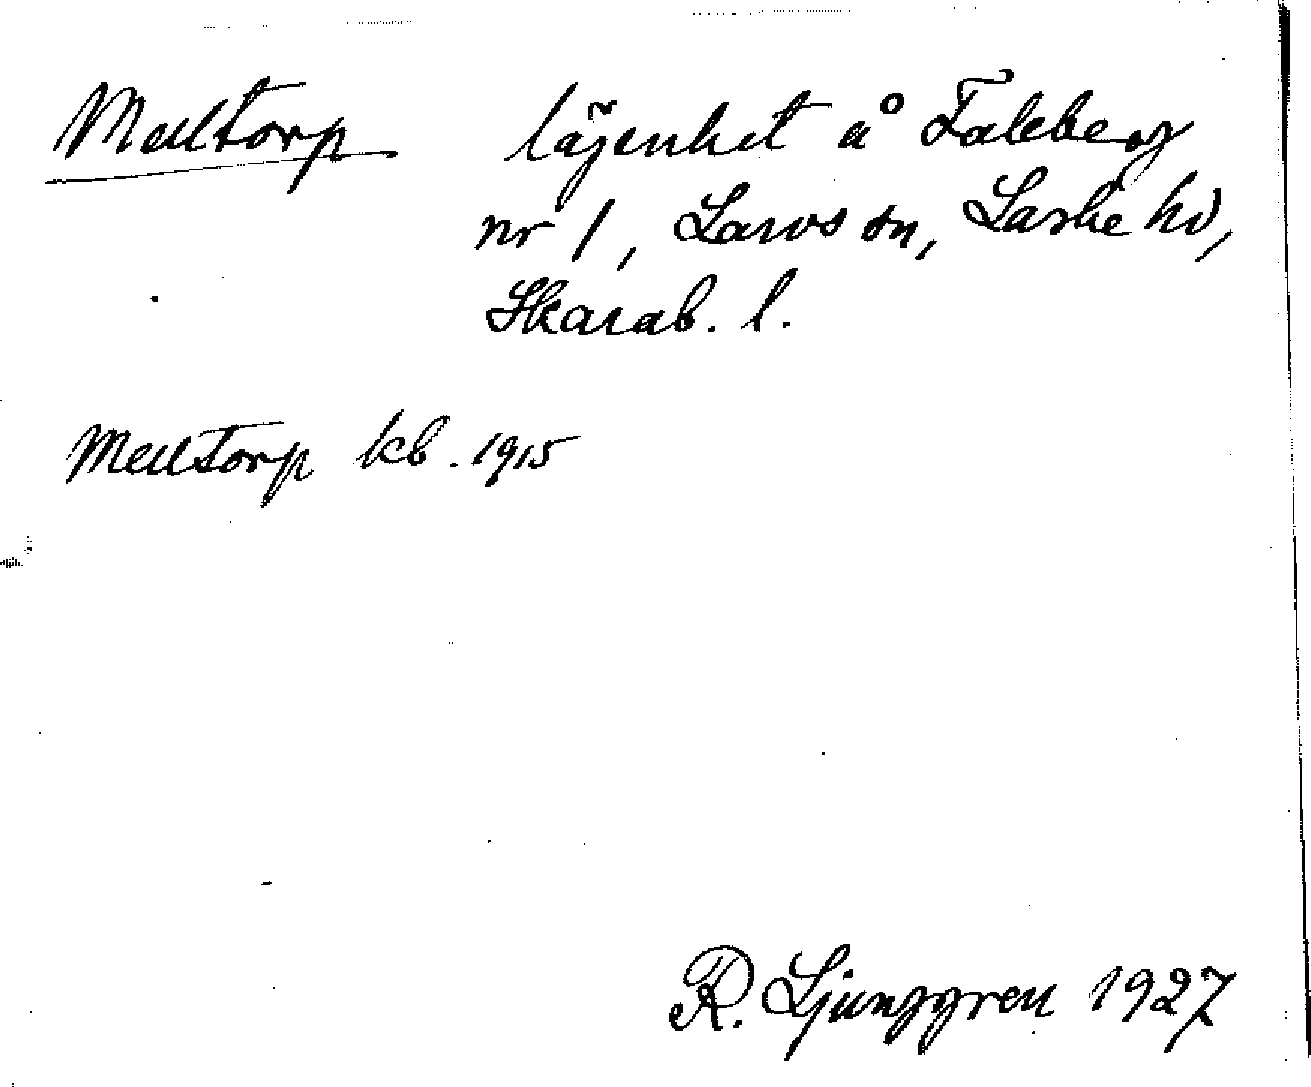 Medtorp lägenhet å Faleberg
nr 1, Larvs sn, Laske hd,
Skarab. l.
Medtorp kb. 1915
R. Ljunggren 1927